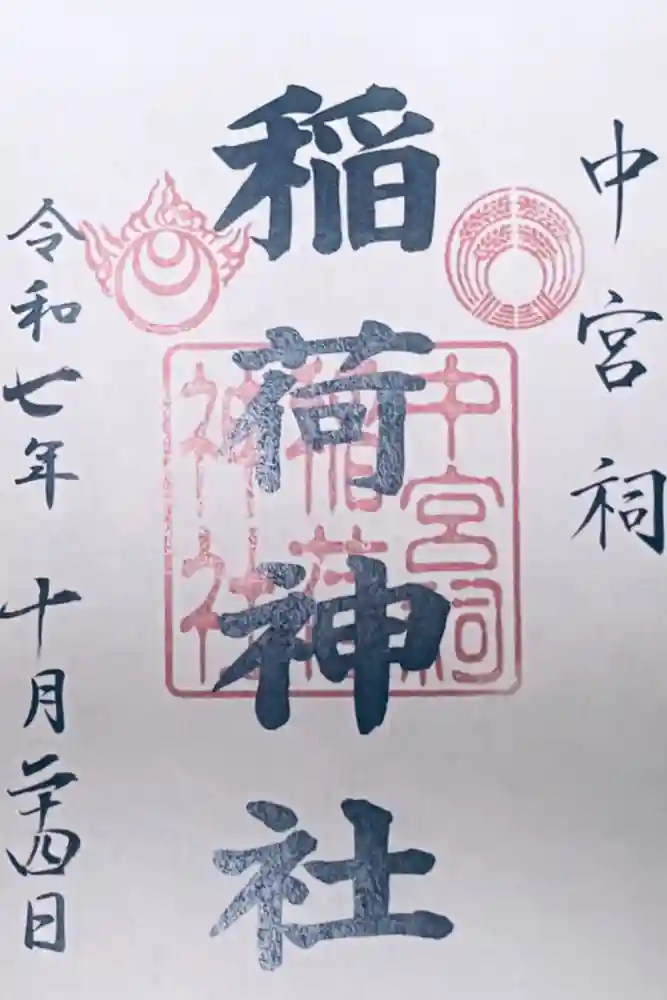 中宮祠
稲荷神社
令和七年 十月二十四日
中宮祠
稲荷
神社